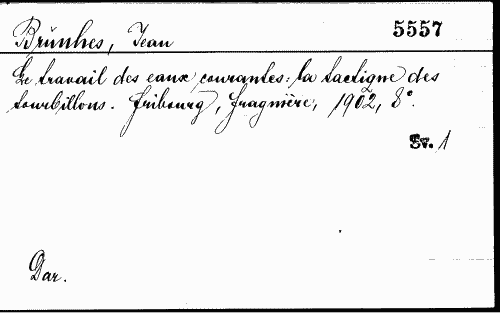 Brunhes, Jean 5557
Le travail des eaux courantes: la tactique des
tourbillons. Fribourg, Fragnière, 1902, 8°.
Sv. 1
Dar.